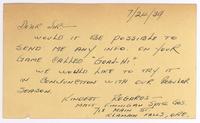 7/24/39
Dear Sir:-
Would it be possible to
send me any info. on your
game called "Goal-Hi"
We would like to try it
in conjunction with our regular
season.
Kindest Regards -
Matt Finnigan Sptg Gds.
712 Main St
Klamath Falls, Ore.